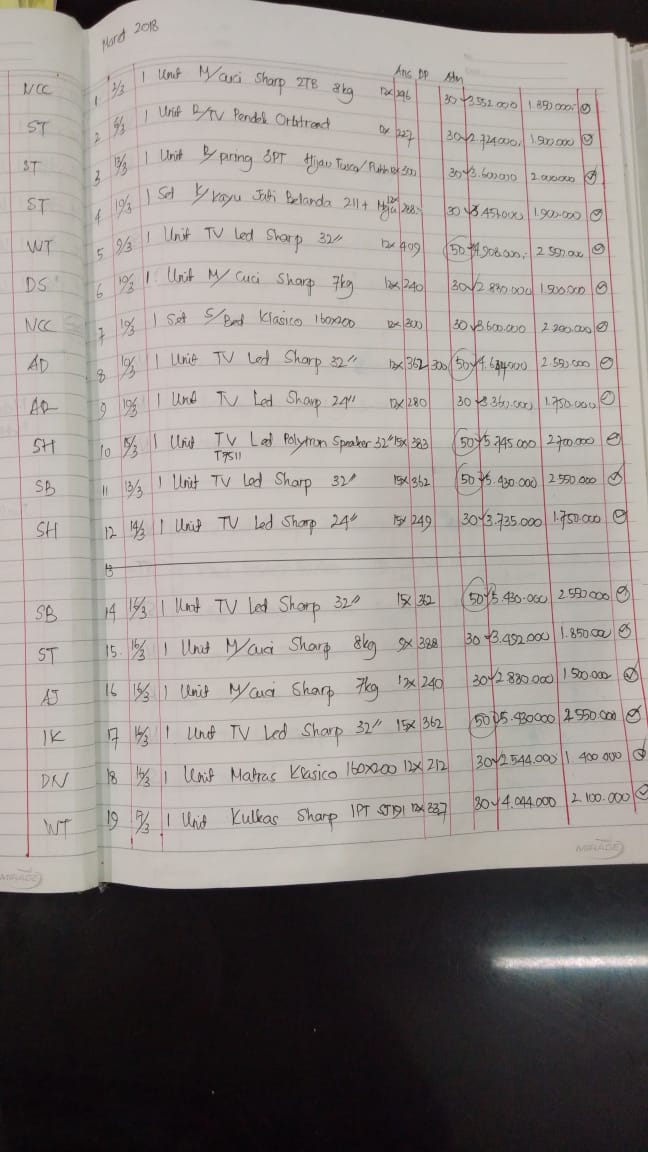 Maret 2018
Anc DP Adm
NCC 1 2/3 1 Unit M/cuci Sharp 2TB 8kg 12x 296 30 3.552.000 1.850.000
ST 2 1 Unit R/TV Pendek Orbitrend 227 30 2.724.000 1.500.000
ST 3 13/3 1 Unit R/piring 3PT Hijau 300 30 3.600.000 2.000.000
ST 4 10/3 1 Set K/kayu Jati Belanda 211 + Meja 12x 288 30 1.900.000
WT 5 9/3 1 Unit TV Led Sharp 32" 12x 409 50 4.908.000 2.550.000
DS 6 10/3 1 Unit M/Cuci Sharp 7kg 12x 240 30 2.880.000 1.500.000
NCC 7 10/3 1 Set S/Bed Klasico 160x200 12x 300 30 3.600.000 2.200.000
AD 8 10/3 1 Unit TV Led Sharp 32" 12x 362 300 50 2.550.000
AR 9 10/3 1 Unit TV Led Sharp 24" 12x 280 30 3.360.000 1.750.000
SH 10 1 Unit TV Led Polytron Speaker 32" 15x 383 50 5.745.000 2.700.000
T7511
SB 11 13/3 1 Unit TV Led Sharp 32" 15x 362 50 5.430.000 2.550.000
SH 12 14/3 1 Unit TV Led Sharp 24" 15x 249 30 3.735.000 1.750.000
13
SB 14 1 Unit TV Led Sharp 32" 15x 362 50 5.430.000 2.550.000
ST 15. 1 Unit M/Cuci Sharp 8kg 9x 388 30 3.492.000 1.850.000
AJ 16 1 Unit M/Cuci Sharp 7kg 12x 240 30 2.880.000 1.500.000
IK 17 1 Unit TV Led Sharp 32" 15x 362 50 5.430.000 2.550.000
DN 18 1 Unit Matras Klasico 160x200 12x 212 30 2.544.000 1.400.000
WT 19 1 Unit Kulkas Sharp 1PT 12x 337 30 4.044.000 2.100.000
MIRAGE
MIRAGE